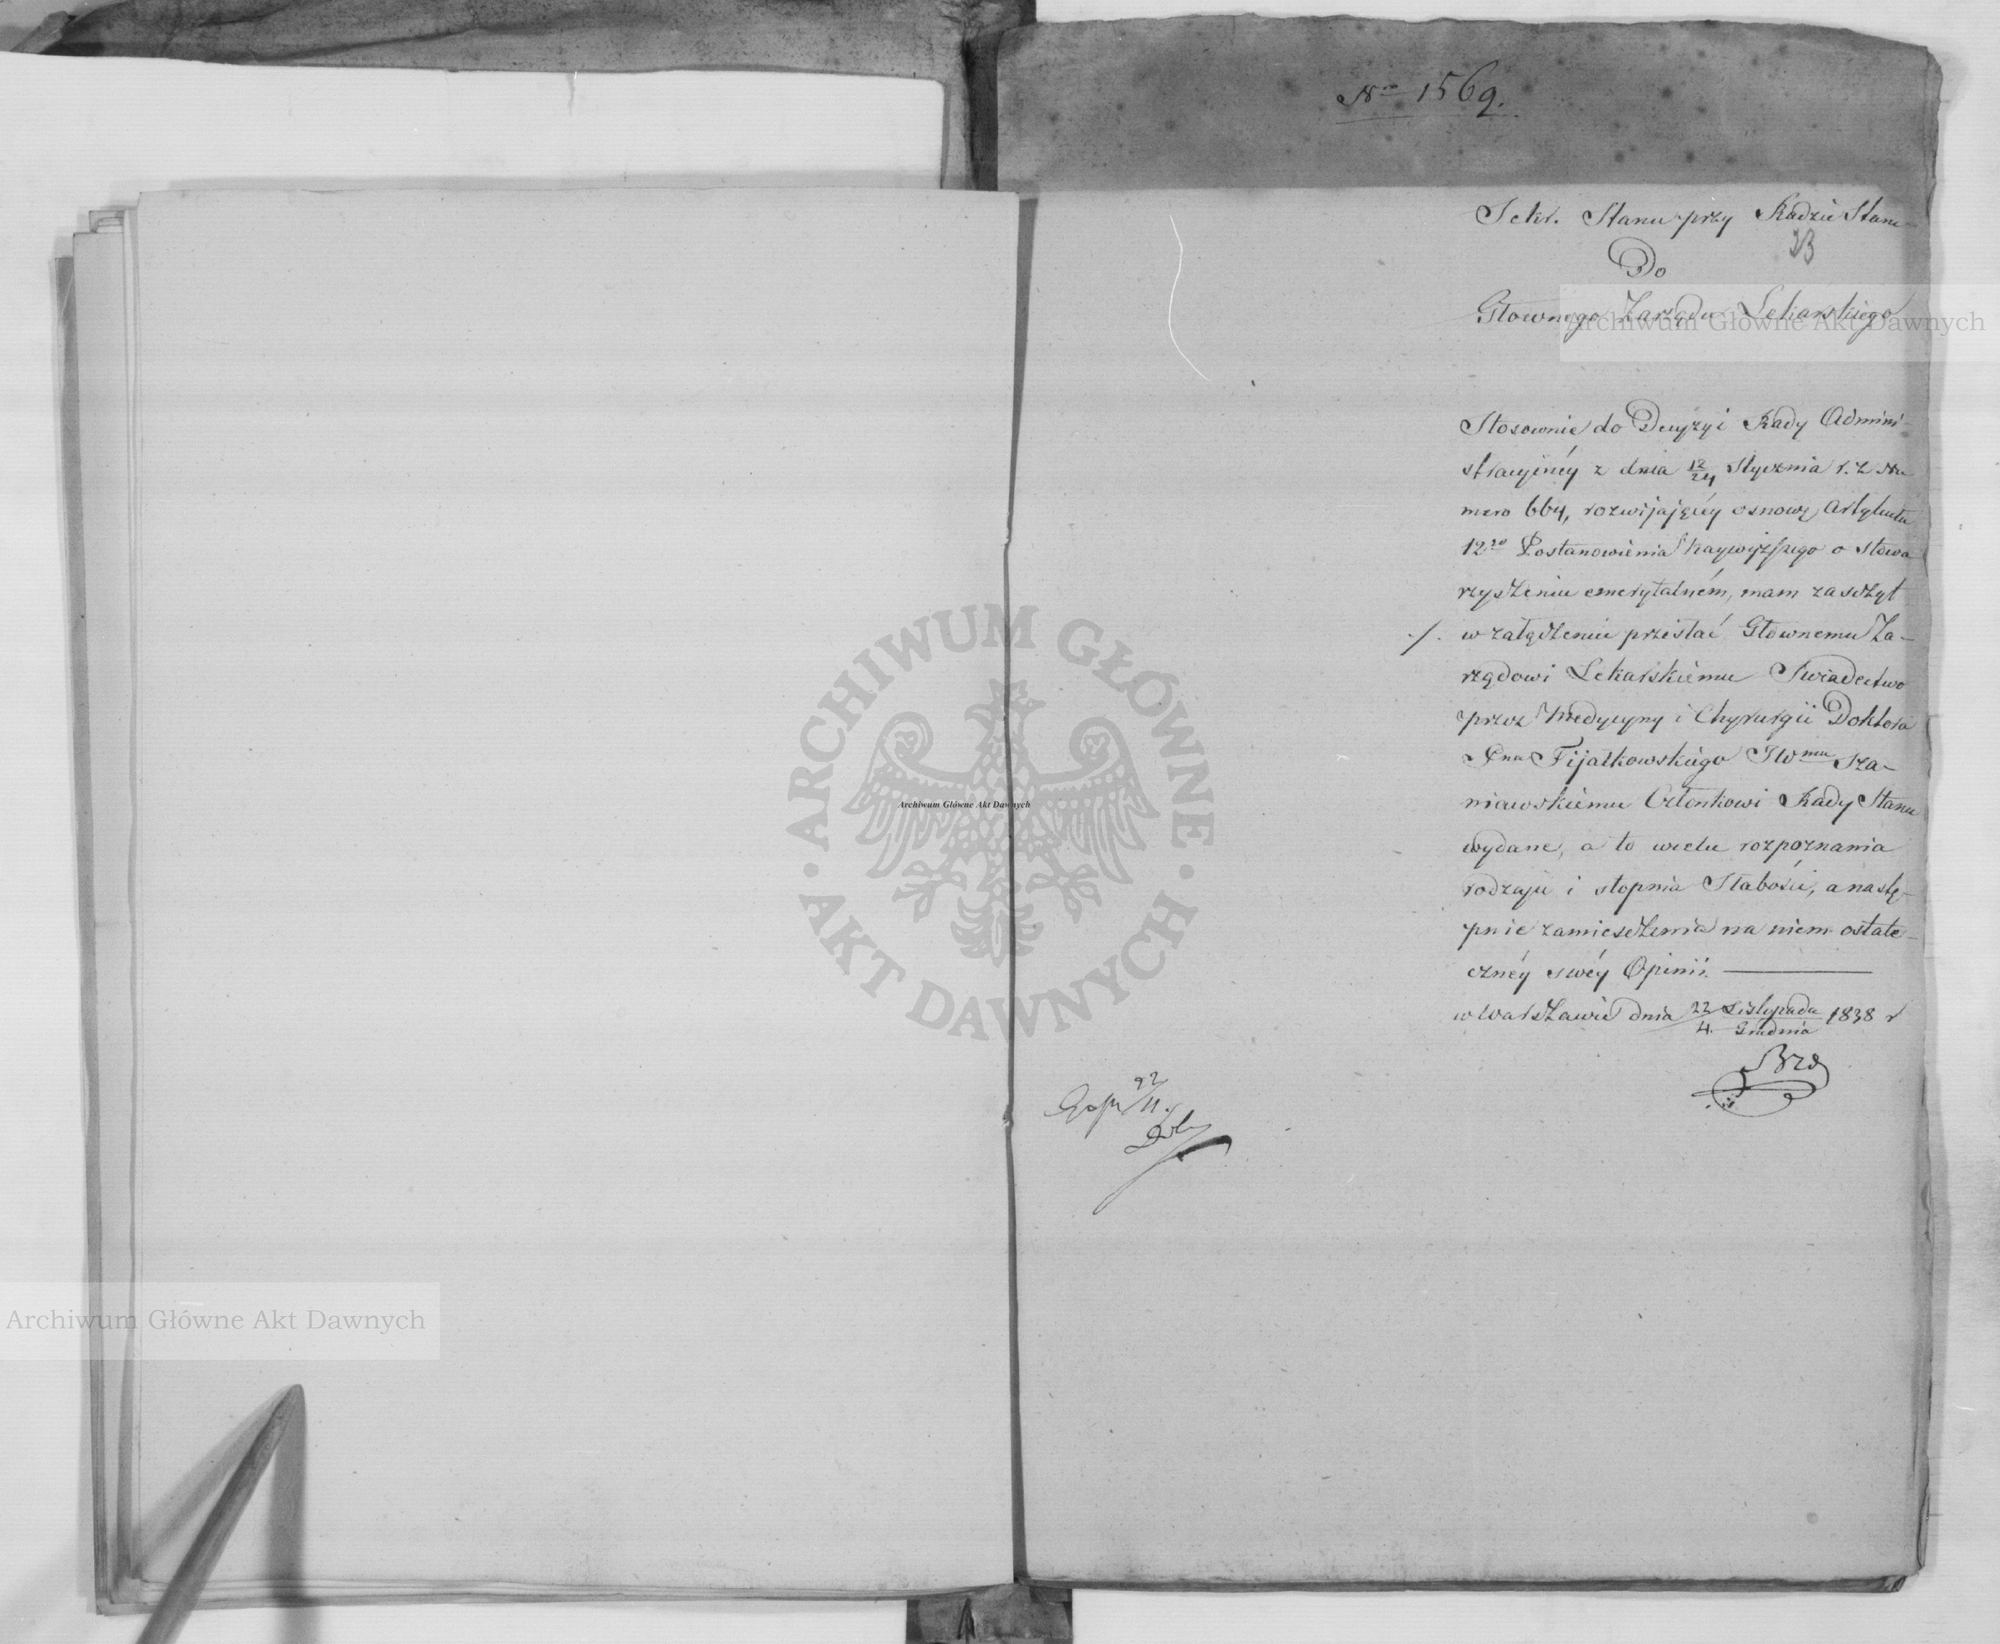 Nro 1569.
Sekr. Stanu przy Radzie Stanu
23
Do
Głownego Zarządu Lekarskiego
Stosownie do Decyzyi Rady Admini-
stracyinéy z dnia 12/24 Stycznia r. z. Nu
mero 664, rozwijaiącéy osnowę Artykułu
12go Postanowienia Naywyższego o Stowa
rzyszeniu emerytalném, mam zaszczyt
./. w załączeniu przesłać Głownemu Za-
rządowi Lekarskiemu Świadectwo
przez Medycyny i Chyrurgii Doktora
Pna Fijałkowskiego JWmu Sza-
niawskiemu Członkowi Rady Stanu
wydane, a to w celu rozpoznania
rodzaju i stopnia Słabości, a nastę-
pnie zamieszczenia na niem ostate-
cznéy swéy Opinii.
w Warszawie dnia 22 Listopada/4. Grudnia 1838 r
22/11.
Archiwum Główne Akt Dawnych
ARCHIWUM GŁÓWNE · AKT DAWNYCH ·
Archiwum Główne Akt Dawnych
Archiwum Główne Akt Dawnych